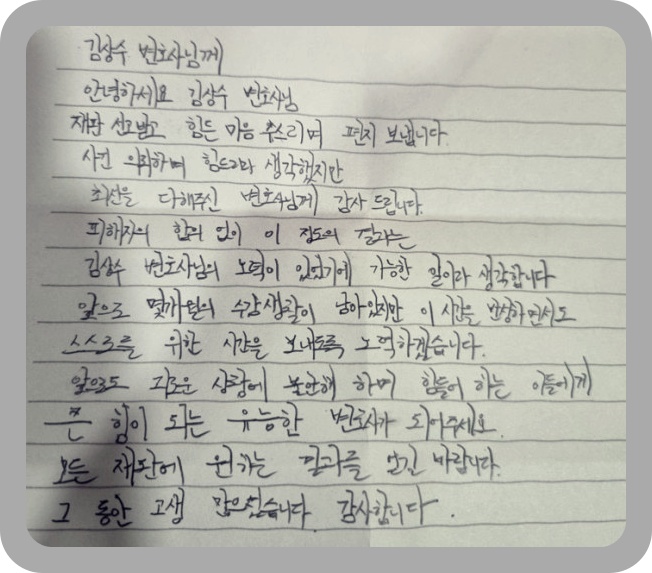 김상수 변호사님께
안녕하세요 김상수 변호사님
재판 선고받고 힘든 마음 추스리며 편지 보냅니다.
사건 의뢰하며 힘드리라 생각했지만
최선을 다해주신 변호사님께 감사 드립니다.
피해자의 합의 없이 이 정도의 결과는
김상수 변호사님의 노력이 있었기에 가능한 일이라 생각합니다
앞으로 몇개월의 수감생활이 남아있지만 이 시간을 반성하면서도
스스로를 위한 시간을 보내도록 노력하겠습니다.
앞으로도 괴로운 상황에 불안해 하며 힘들어 하는 이들에게
큰 힘이 되는 유능한 변호사가 되어주세요.
모든 재판에 원하는 결과를 얻길 바랍니다.
그 동안 고생 많으셨습니다. 감사합니다.